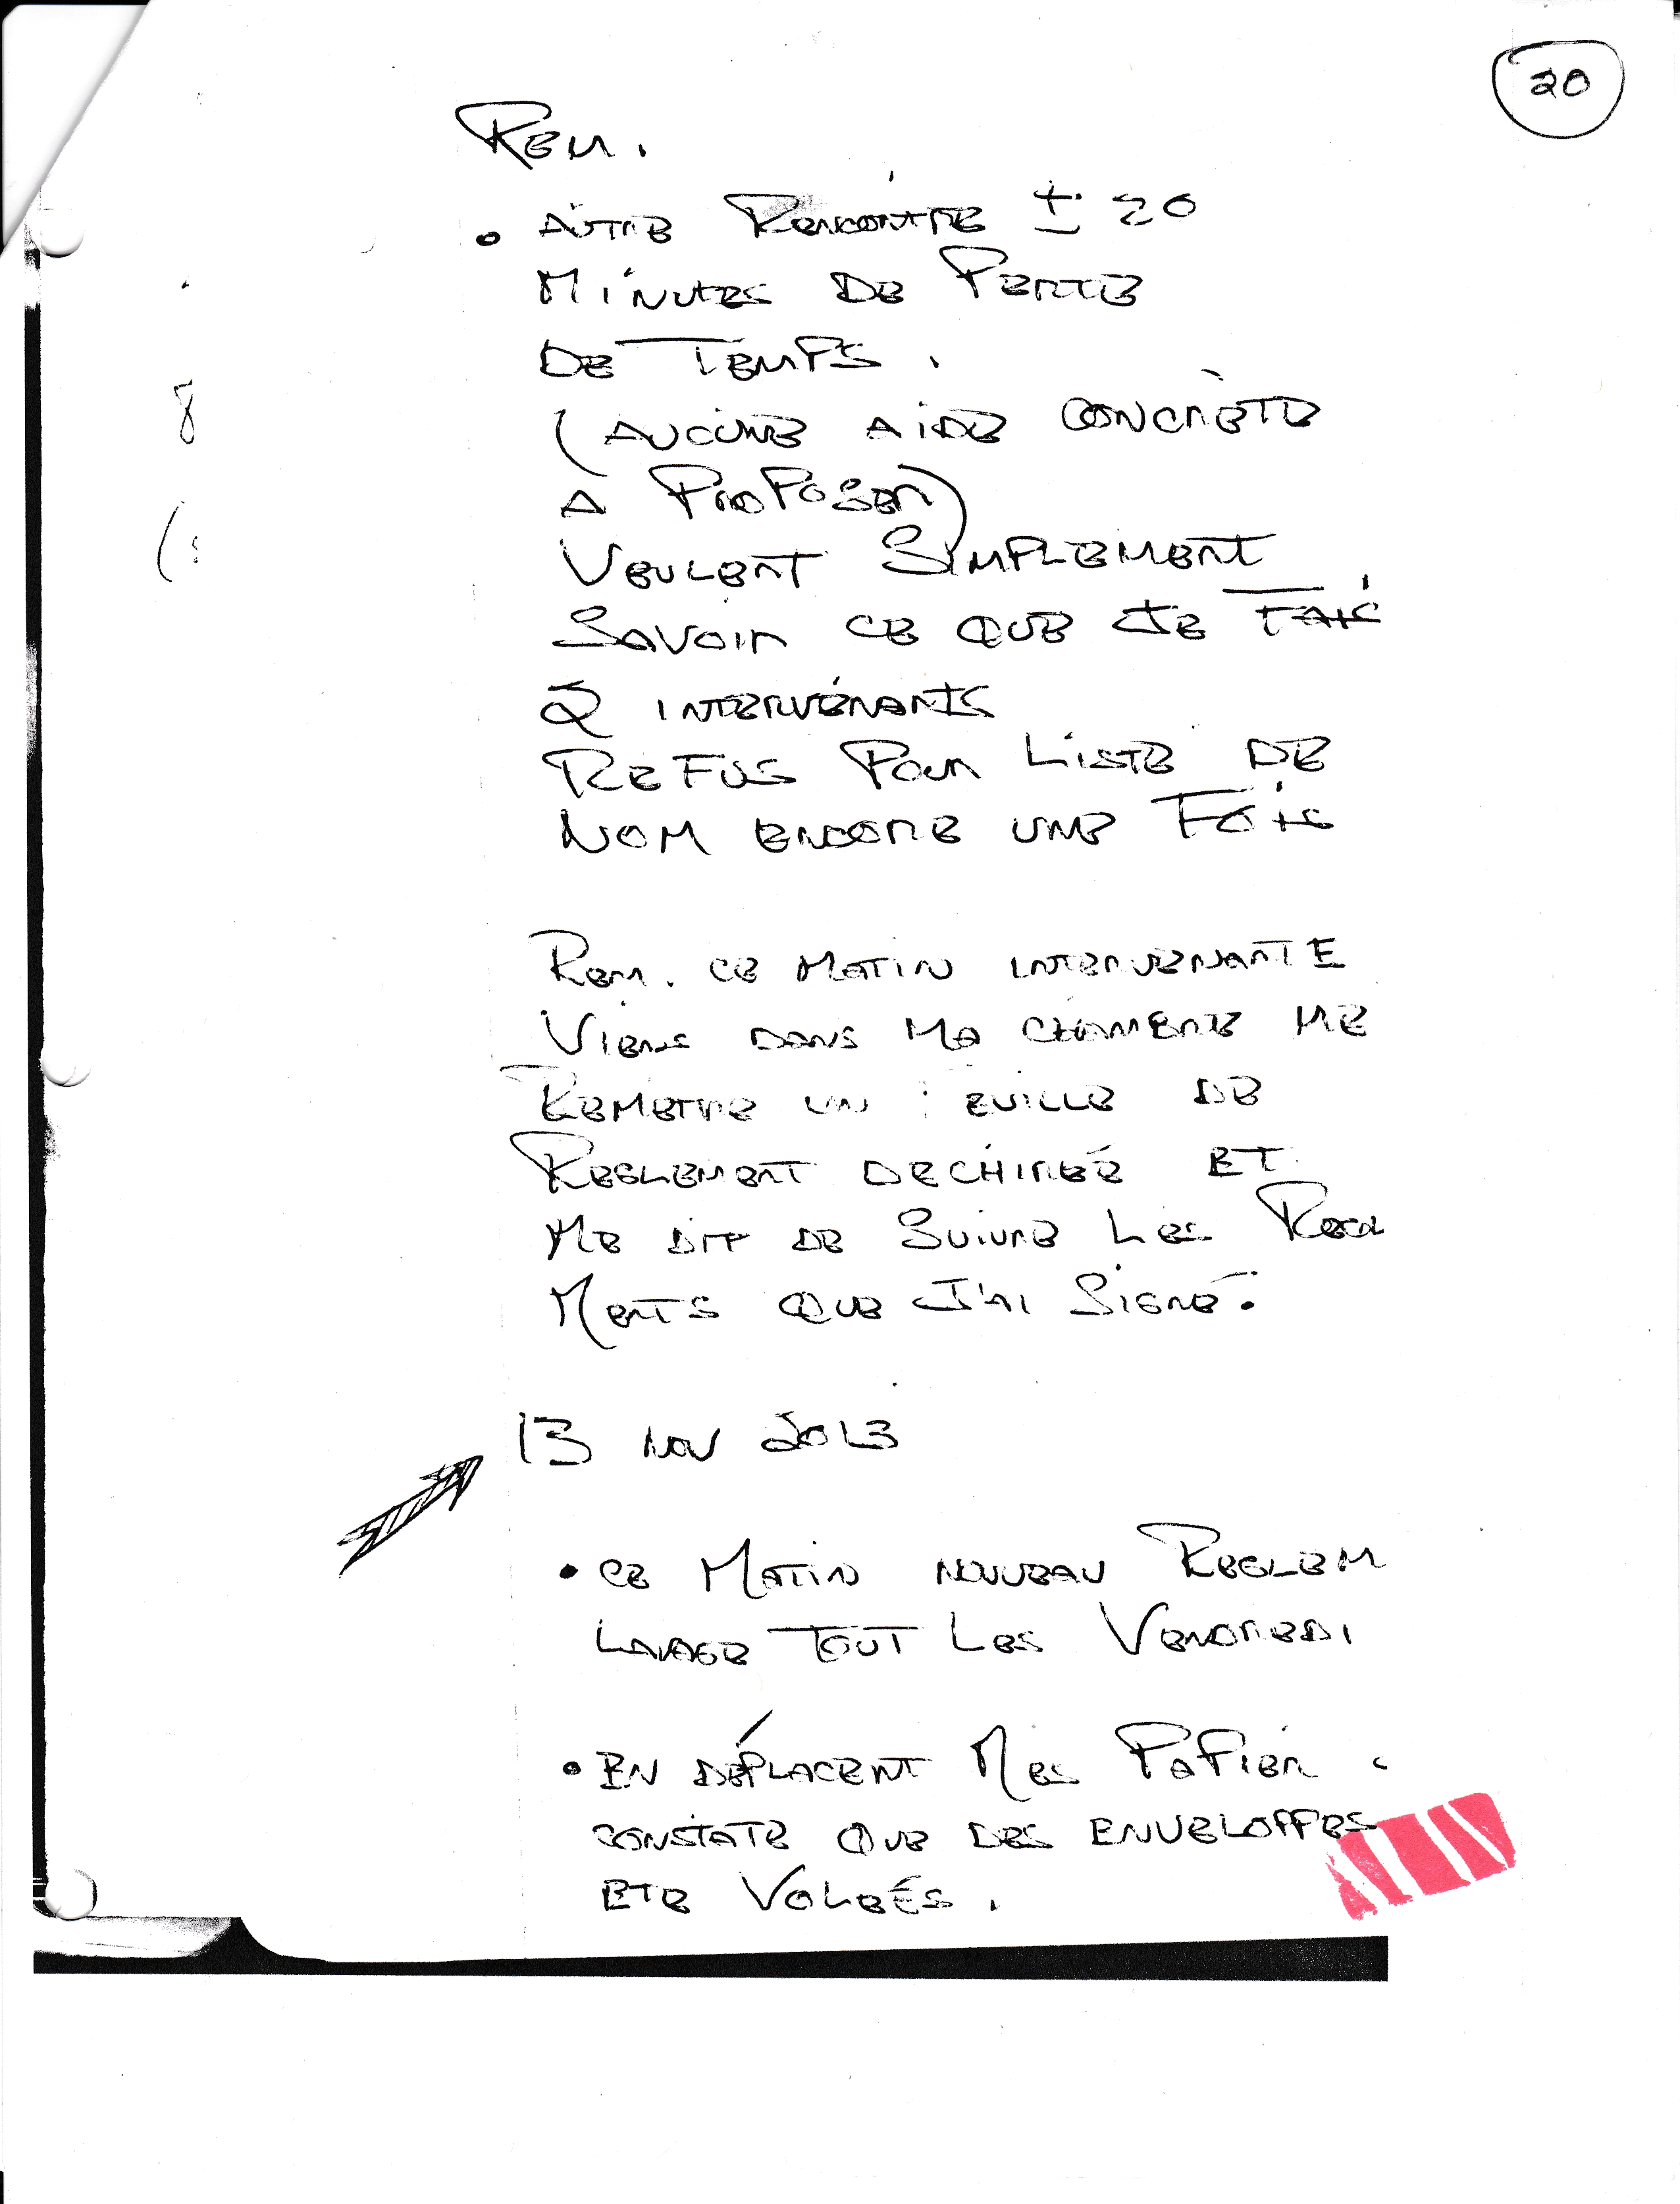 20
REM.
• AUTRE RENCONTRE ± 20
MINUTES DE PERTE
DE TEMPS.
(AUCUNE AIDE CONCRÈTE
A PROPOSER)
VEULENT SIMPLEMENT
SAVOIR CE QUE JE FAIS
2 INTERVENANTS
REFUS POUR LISTE DE
NOM ENCORE UNE FOIS
8
(
REM. CE MATIN INTERVENANTE
VIENS DANS MA CHAMBRE ME
REMETRE UN EUILLE DE
REGLEMENT DECHIRÉE ET
ME DIT DE SUIVRE LES REGL
MENTS QUE J'AI SIGNÉ.
13 NOV 2013
• CE MATIN NOUVEAU REGLEM
LAVAGE TOUT LES VENDREDI
• EN DÉPLACENT MES PAPIER
CONSTATE QUE DES ENVELOPPES
ETE VOLÉES.